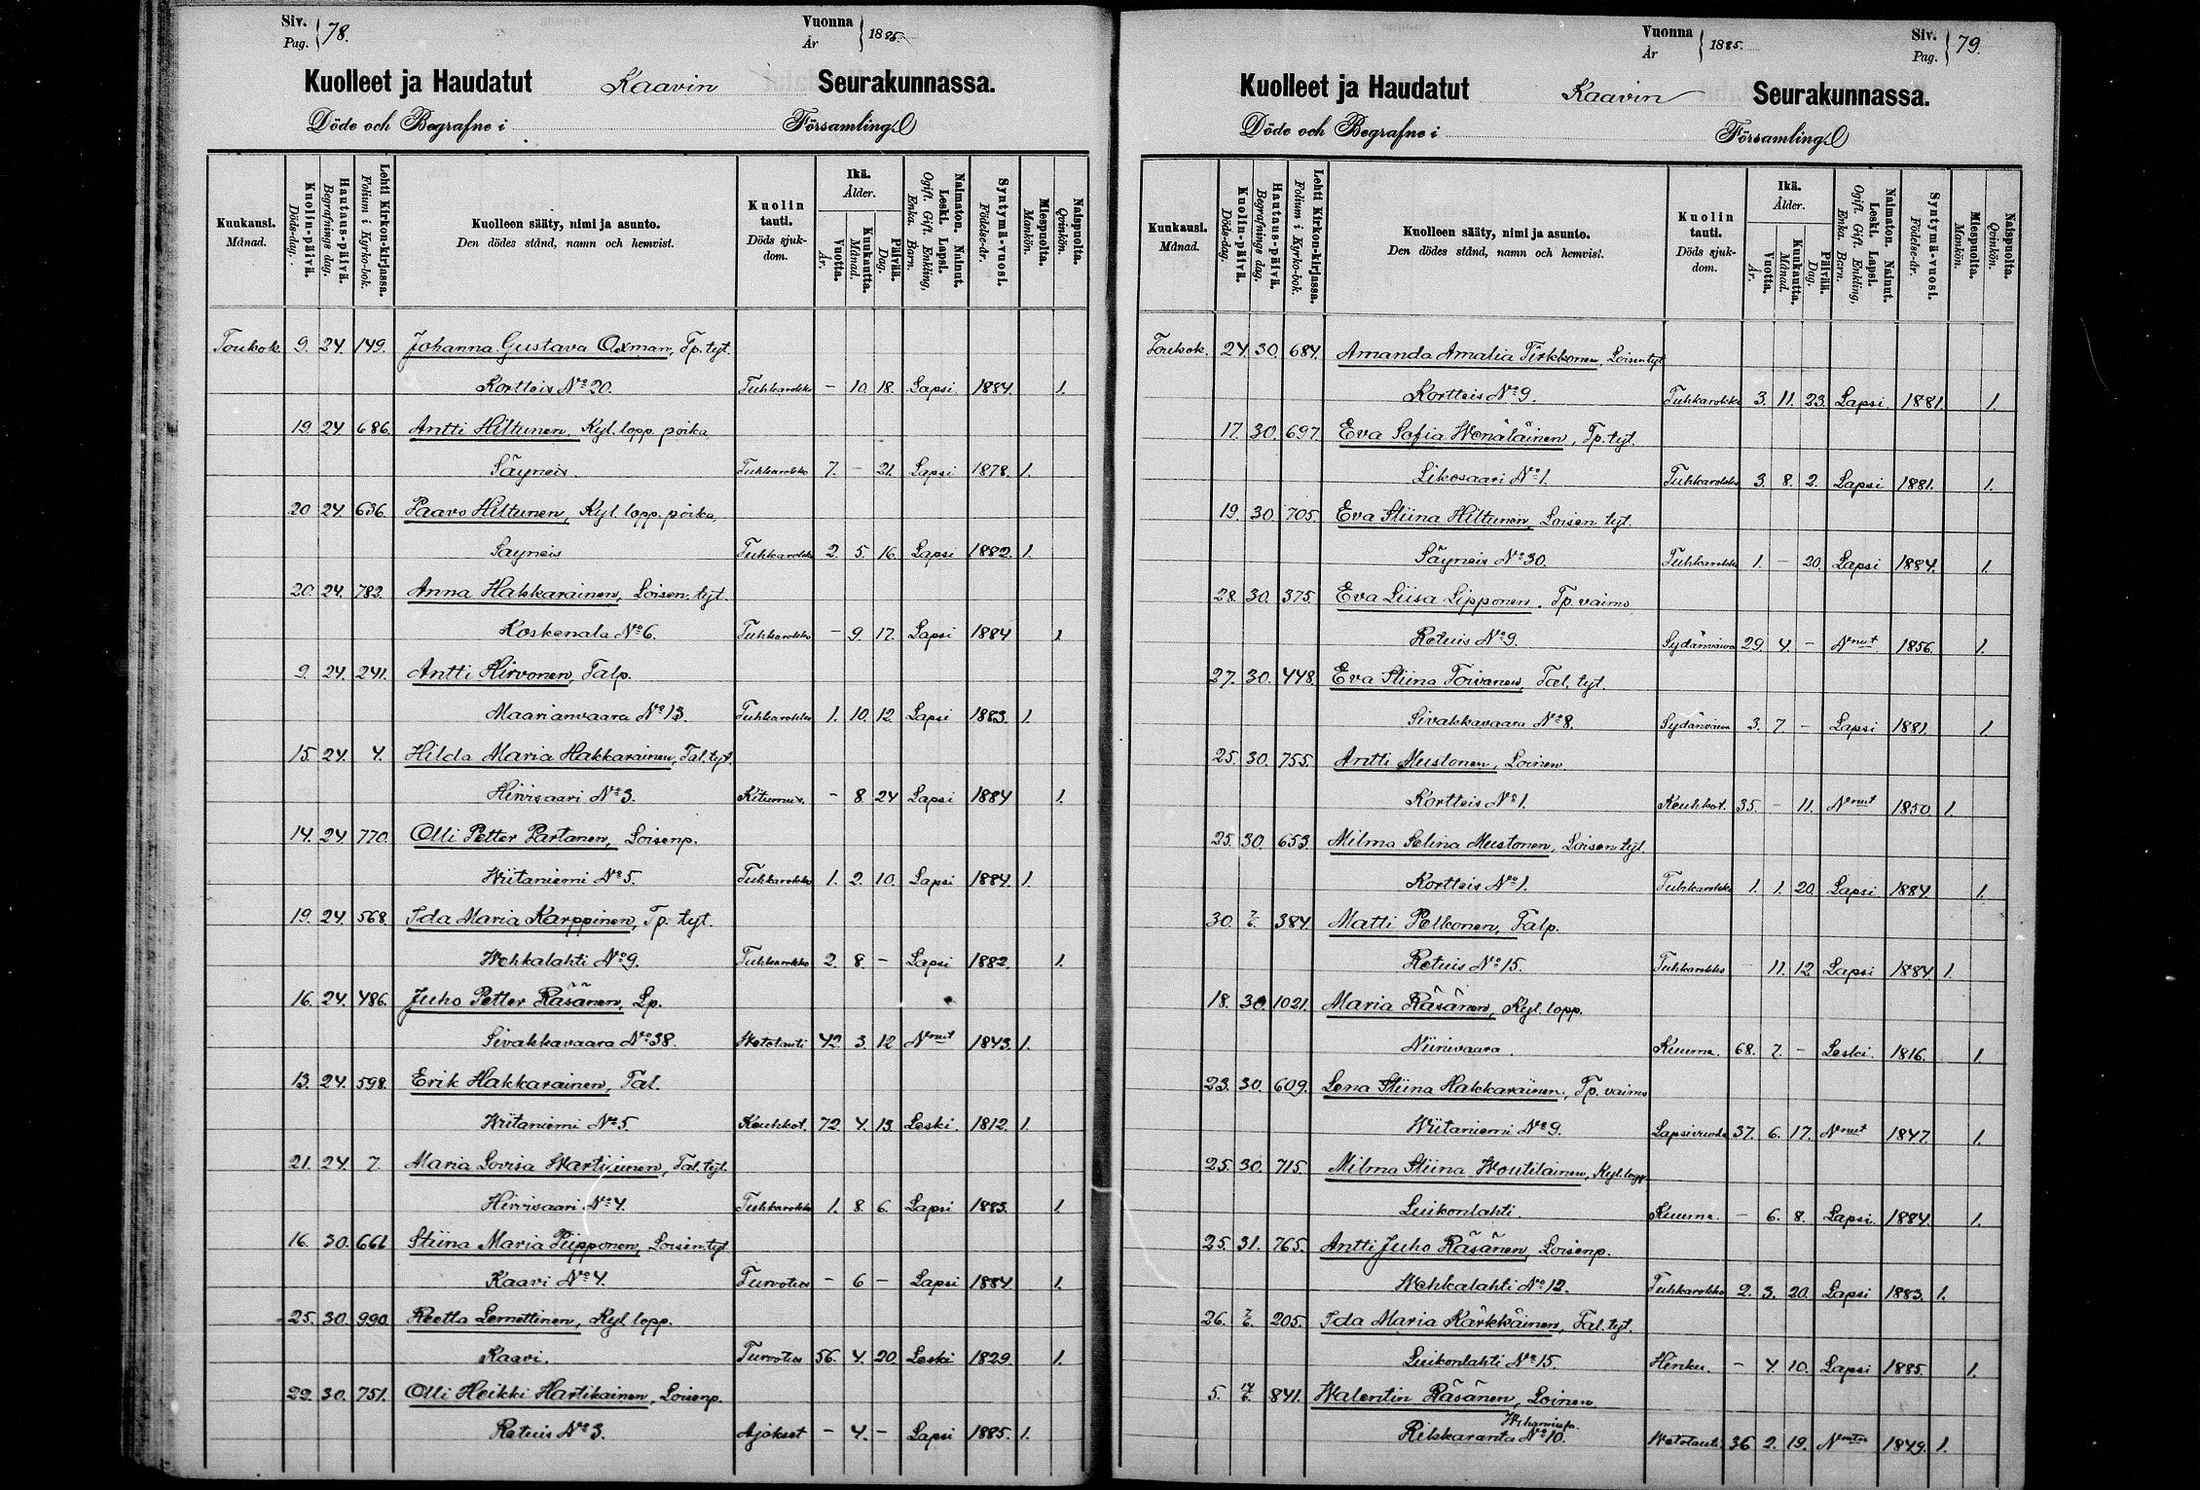 Siv. Pag. } 78.
Vuonna År } 1885.
Kuolleet ja Haudatut Kaavin Seurakunnassa.
Döde och Begrafne i Församling.
Kuukausi. Månad.
Kuolin-päivä. Döds-dag.
Hautaus-päivä. Begrafnings dag.
Lehti Kirkon-kirjassa. Folium i Kyrko-bok.
Kuolleen sääty, nimi ja asunto. Den dödes stånd, namn och hemvist.
Kuolin tauti. Döds sjukdom.
Ikä. Ålder.
Vuotta. År.
Kuukautta. Månad.
Päivää. Dag.
Naimaton. Nainut. Leski. Lapsi. Ogift. Gift. Enkling, Enka. Barn.
Syntymä-vuosi. Födelse-år.
Miespuolta. Mankön.
Naispuolta. Qvinkön.
Toukok. 9. 24. 149. Johanna Gustava Axman, Tp. tyt.
Kortteis No 20. Tuhkarokko – 10. 18. Lapsi 1884. 1.
19. 24 686. Antti Hiltunen. Kyl. lopp. poika
Säyneis. Tuhkarokko 7. – 21. Lapsi 1878. 1.
20 24. 636. Paavo Hiltunen, Kyl. lopp. poika,
Säyneis Tuhkarokko 2. 5. 16. Lapsi 1882. 1.
20. 24. 782. Anna Hakkarainen, Loisen. tyt.
Koskenala No 6. Tuhkarokko – 9. 17. Lapsi 1884 1
9. 24. 241. Antti Hirvonen, Talp.
Maarianvaara No 13. Tuhkarokko 1. 10. 12. Lapsi 1883. 1.
15. 24. 4. Hilda Maria Hakkarainen, Tal. tyt.
Hirvisaari No 3. Kitumus. – 8. 24 Lapsi 1884 1.
14. 24. 770. Olli Petter Partanen, Loisenp.
Wiitaniemi No 5. Tuhkarokko 1. 2. 10. Lapsi 1884. 1.
19. 24. 568. Ida Maria Karppinen, Tp. tyt.
Wehkalahti No 9. Tuhkarokko 2. 8. – Lapsi 1882. 1.
16. 24. 486. Juho Petter Räsänen, Lp.
Sivakkavaara No 38. Wetotauti 42. 3. 12 Nnut 1843. 1.
13. 24. 598. Erik Hakkarainen, Tal.
Wiitaniemi No 5. Keuhkot. 72. 4. 13. Leski. 1812. 1.
21. 24. 7. Maria Lovisa Wartiainen, Tal. tyt.
Hirvisaari No 4. Tuhkarokko 1. 8. 6. Lapsi 1883. 1.
16. 30. 661 Stiina Maria Piipponen, Loisen. tyt
Kaavi No 4. Turvotus – 6 – Lapsi 1884. 1.
25. 30. 990. Reetta Lemettinen, Kyl. lopp.
Kaavi. Turvotus 56. 4. 20. Leski 1829. 1.
22. 30. 751. Olli Heikki Hartikainen, Loisenp.
Retuis No 3. Ajokset – 4. – Lapsi 1885. 1.
Vuonna År } 1885.
Siv. Pag. } 79.
Kuolleet ja Haudatut Kaavin Seurakunnassa.
Döde och Begrafne i Församling.
Kuukausi. Månad.
Kuolin-päivä. Döds-dag.
Hautaus-päivä. Begrafnings dag.
Lehti Kirkon-kirjassa. Folium i Kyrko-bok.
Kuolleen sääty, nimi ja asunto. Den dödes stånd, namn och hemvist.
Kuolin tauti. Döds sjukdom.
Ikä. Ålder.
Vuotta. År.
Kuukautta. Månad.
Päivää. Dag.
Naimaton. Nainut. Leski. Lapsi. Ogift. Gift. Enkling, Enka. Barn.
Syntymä-vuosi. Födelse-år.
Miespuolta. Mankön.
Naispuolta. Qvinkön.
Toukok. 24. 30. 684. Amanda Amalia Tirkkonen, Loisen tyt
Kortteis No 9. Tuhkarokko 3. 11. 23. Lapsi. 1881. 1.
17. 30. 697. Eva Sofia Wenäläinen, Tp. tyt.
Likosaari No 1. Tuhkarokko 3. 8. 2. Lapsi 1881. 1.
19. 30. 705. Eva Stiina Hiltunen, Loisen tyt.
Säyneis No 30. Tuhkarokko 1. – 20. Lapsi 1884. 1.
28. 30. 375. Eva Liisa Lipponen. Tp. vaimo
Retuis No 9. Sydänvaiva 29. 4. – Nnut 1856. 1.
27. 30. 448. Eva Stiina Toivanen, Tal. tyt.
Sivakkavaara No 8. Sydänvaiva 3. 7. – Lapsi 1881. 1
25. 30. 755. Antti Mustonen, Loinen.
Kortteis No 1. Keuhkot. 35. – 11. Nnut 1850 1.
25. 30. 653. Milma Selina Mustonen, Loisen tyt.
Kortteis No 1. Tuhkarokko 1. 1. 20. Lapsi 1884. 1.
30. 7/6. 384. Matti Pelkonen, Talp.
Retuis No 15. Tuhkarokko – 11. 12 Lapsi 1884 1.
18. 30. 1021. Maria Räsänen, Kyl. lopp.
Niinivaara. Kuume. 68. 7. – Leski. 1816. 1
23. 30. 609. Lena Stiina Hakkarainen, Tp. vaimo
Wiitaniemi No 9. Lapsivuode 37. 6. 17. Nnut 1847. 1.
25. 30. 715. Milma Stiina Woutilainen, Kyl. lopp.
Luikonlahti. Kuume. – 6. 8. Lapsi. 1884. 1.
25. 31. 765. Antti Juho Räsänen, Loisenp.
Wehkalahti No 12. Tuhkarokko 2. 3. 20. Lapsi 1883. 1.
26. 7/6. 205. Ida Maria Kärkkäinen, Tal. tyt.
Luikonlahti No 15. Henku. – 4. 10. Lapsi 1885. 1.
5. 14/6. 841. Walentin Räsänen, Loinen.
Rikkaranta No 10. Wetotauti 36 2. 19. 1849. 1.